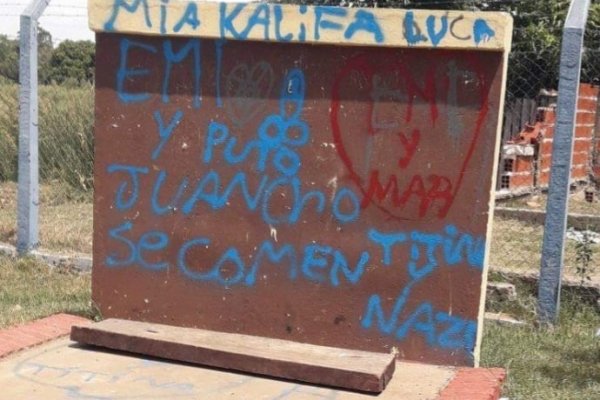 MIA KALIFA LUCA
EMI
Y PUTO
JUANCHO
SE COMEN
TITIN
Y
NAZI
EMI
Y
MAR